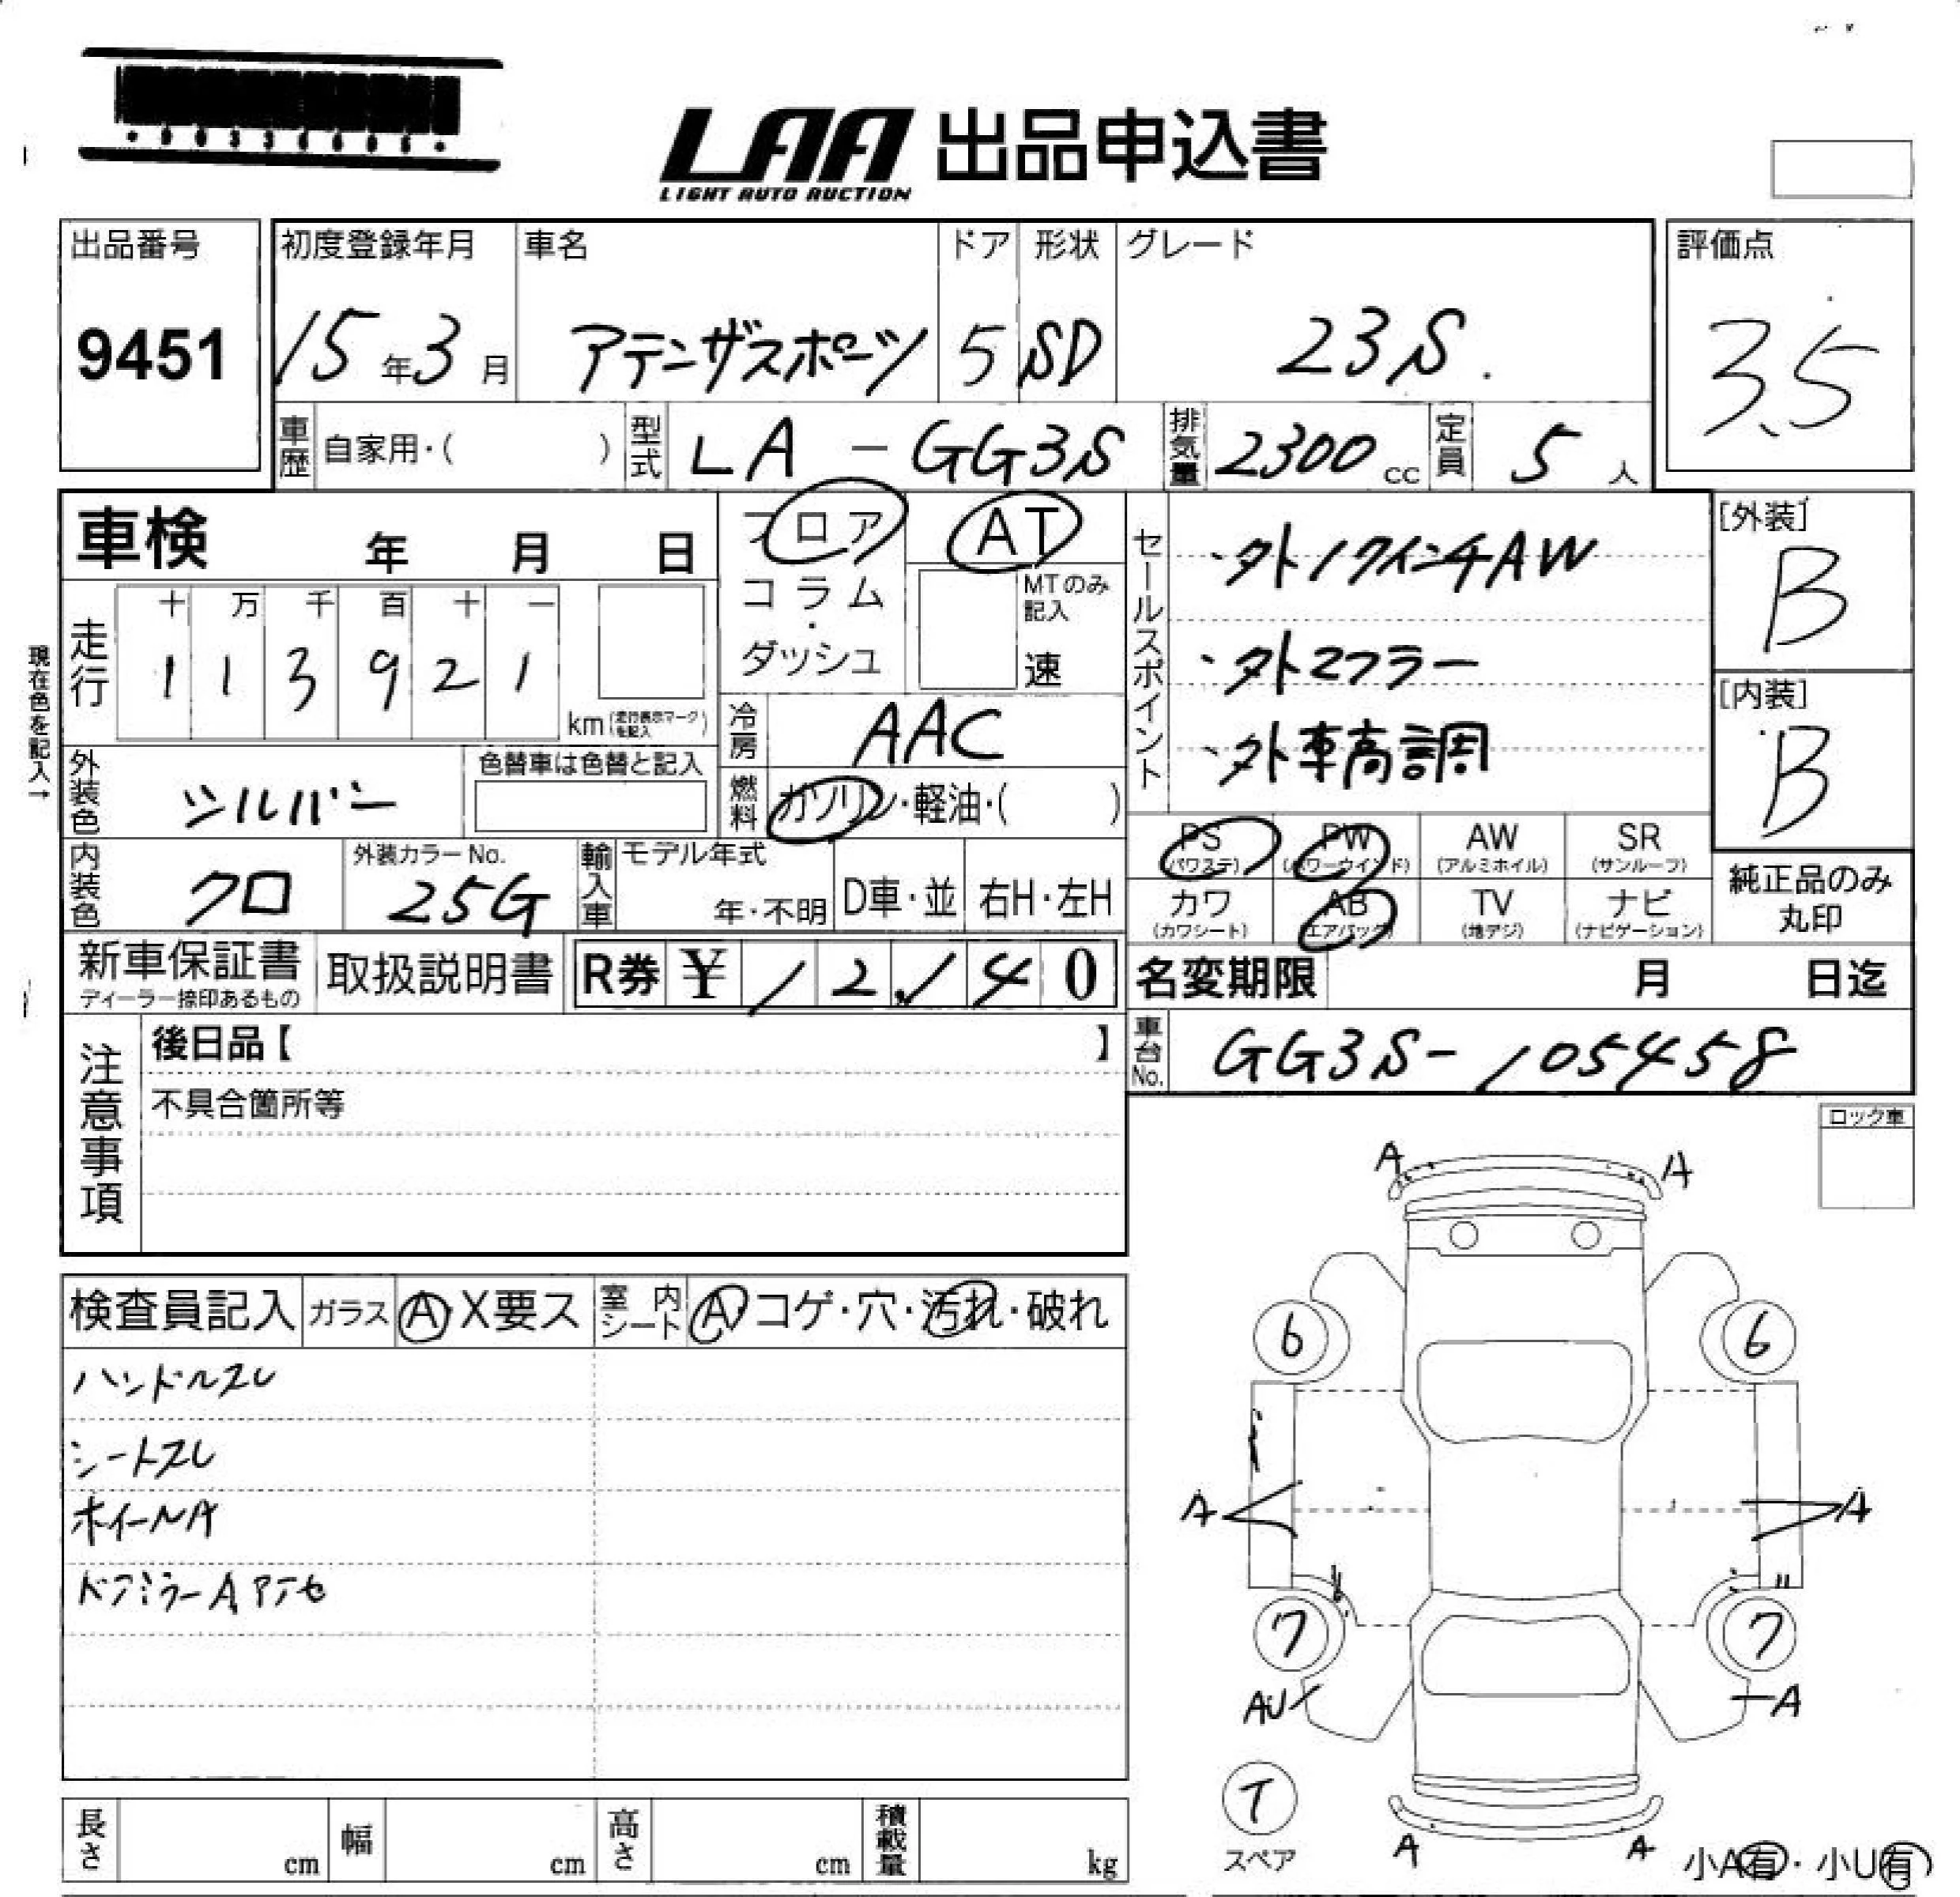 LAA 出品申込書
LIGHT AUTO AUCTION
出品番号 初度登録年月 車名 ドア 形状 グレード 評価点
9451 15年3月 アテンザスポーツ 5 SD 23S. 3.5
車歴 自家用・( ) 型式 LA-GG3S 排気量 2300cc 定員 5人
車検 年 月 日 フロア AT
コラム・ダッシュ MTのみ記入 速
現在色を記入→
走行 十 万 千 百 十 一
1 1 3 9 2 1 km(走行表示マークを記入)
冷房 AAC
外装色 シルバー 色替車は色替と記入 燃料 ガソリン・軽油・( )
内装色 クロ 外装カラーNo. 25G 輸入車 モデル年式 年・不明 D車・並 右H・左H
セールスポイント
・外17インチAW
・外マフラー
・外車高調
[外装] B
[内装] B
PS(パワステ) PW(パワーウインド) AW(アルミホイル) SR(サンルーフ)
カワ(カワシート) AB(エアバック) TV(地デジ) ナビ(ナビゲーション)
純正品のみ丸印
新車保証書 ディーラー捺印あるもの 取扱説明書 R券 ¥ 12,140
名変期限 月 日迄
車台No. GG3S-105458
注意事項 後日品【 】
不具合箇所等
ロック車
検査員記入 ガラス A・X要ス 室内シート A・コゲ・穴・汚れ・破れ
ハンドルスレ
シートスレ
ホイールA
ドアミラーAアテセ
A A
6 6
A A
7 7
AU A
T
スペア
A A
小A有・小U有
長さ cm 幅 cm 高さ cm 積載量 kg